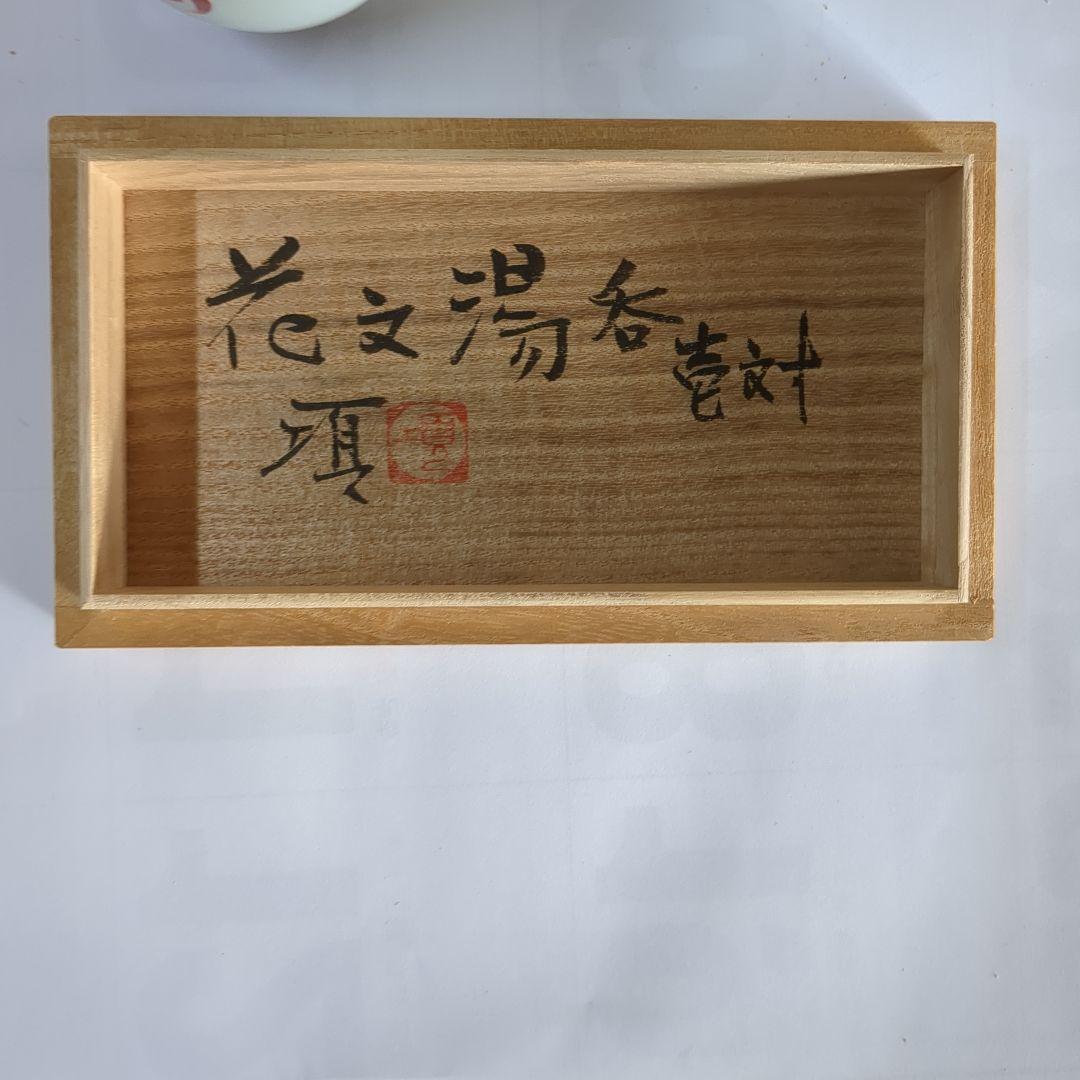 花文湯呑壱対
項